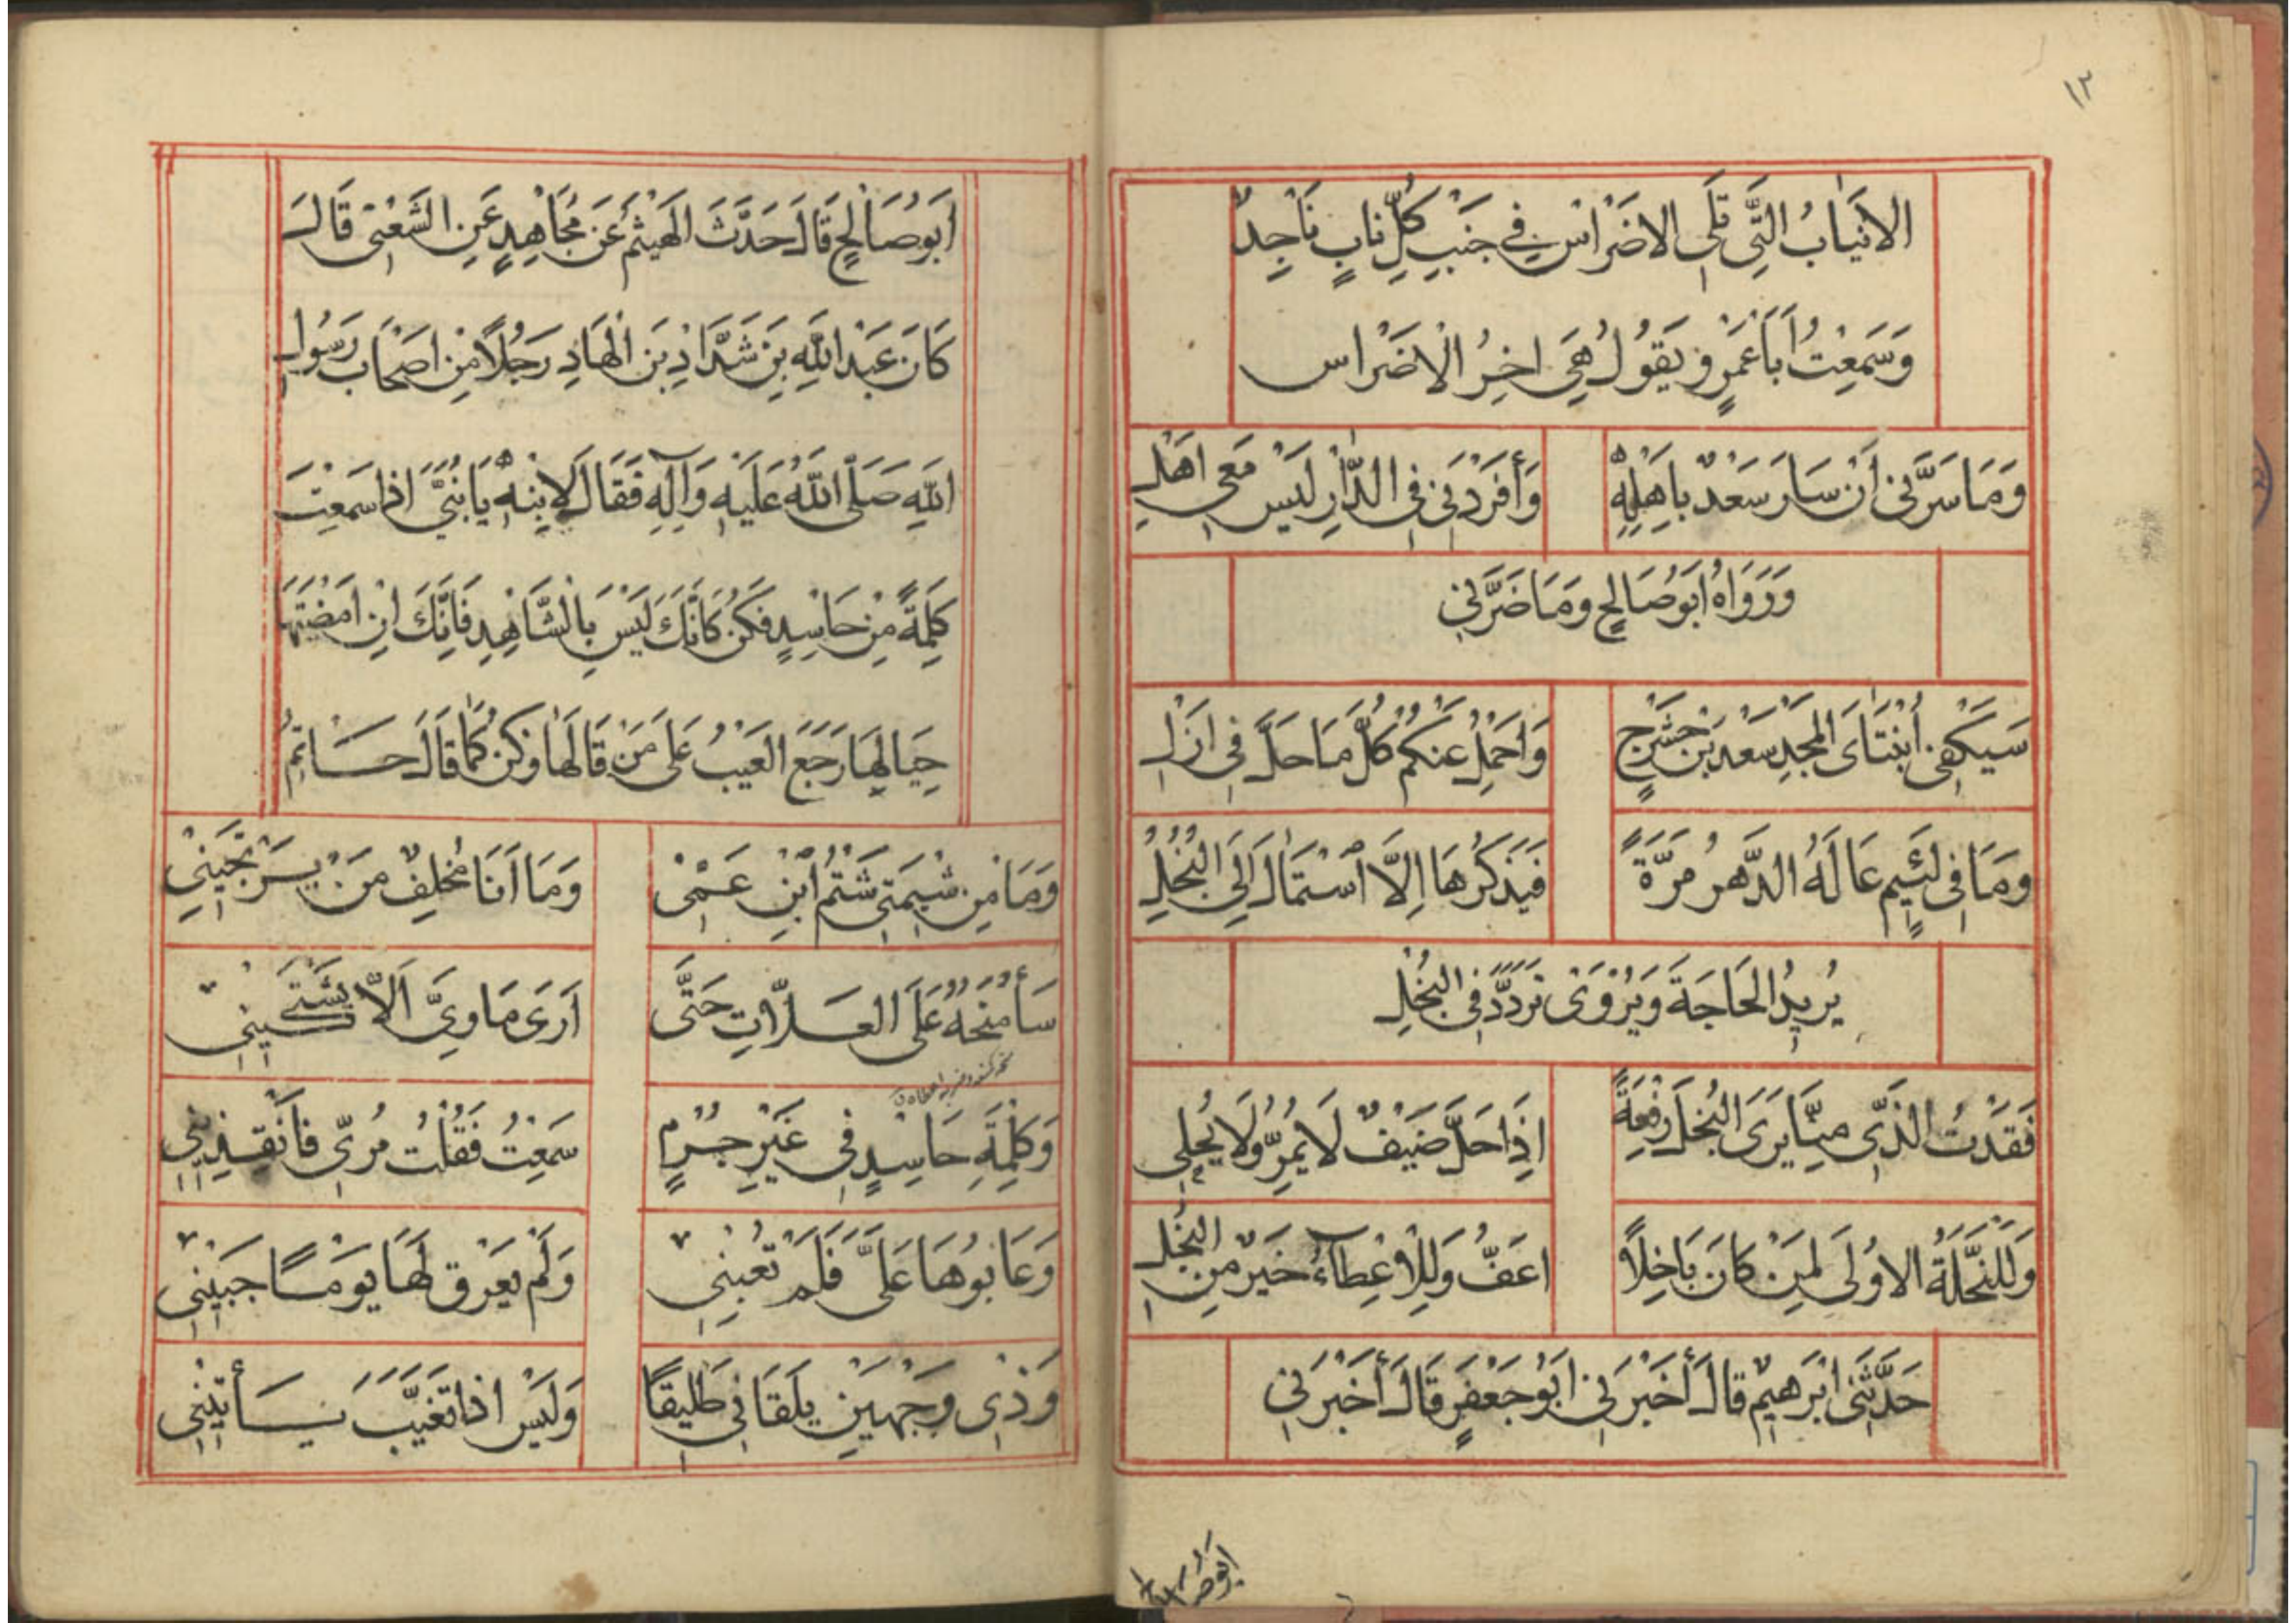 ١٣
الاَنْيَابُ الَّتِي تَلِي الاَضْرَاسَ فِي جَنْبِ كُلِّ نَابٍ نَاجِدٌ
وَسَمِعْتُ اَبَا عَمْرٍو يَقُولُ هِيَ اخِرُ الْاَضْرَاس
وَمَا سَرَّنِي اَنْ سَارَ سَعْدٌ بِاَهْلِهِ وَأَفْرَدَنِي فِي الدَّارِ لَيْسَ مَعِي اَهْلِي
وَرَوَاهُ اَبُو صَالِحٍ وَمَا ضَرَّنِي
سَيَكْفِي اُبْتِنَاىَ المَجْدَ سَعْدَ بْنَ حَشْرَجٍ وَاَحْمِلُ عَنْكُمْ كُلَّ مَا حَلَّ فِي اَزْلِ
وَمَا فِي لَئِيمٍ عَالَهُ الدَّهْرُ مَرَّةً فَيَذْكُرُهَا اِلَّا اُسْتَمَالَ اِلَى البُخْلِ
يُرِيدُ الحَاجَةَ وَيُرْوَى تَرَدَّدَ فِي البُخْلِ
فَقَدْتُ الَّذِي مِمَّا يَرَى البُخْلَ رِفْعَةً اِذَا حَلَّ ضَيْفٌ لَا يُمِرُّ وَلَا يُحْلِى
وَلَلنَّخْلَةُ الاُولَى لِمَنْ كَانَ بَاخِلًا اَعَفُّ وَلَلْاِعْطَآءُ خَيْرٌ مِنَ البُخْلِ
حَدَّثَنِي اِبْرَهِيمُ قَالَ أَخْبَرَنِي اَبُو جَعْفَرٍ قَالَ أَخْبَرَنِي
اَبُو صَالِحٍ قَالَ حَدَّثَ الهَيْثَمُ عَنْ مُجَاهِدٍ عَنِ الشَّعْبِي قَالَ
كَانَ عَبْدَ اللَّهِ بْنِ شَدَّادِ بْنَ الْهَادِ رَجُلًا مِنْ اَصْحَابِ رَسُولِ
اللَّهِ صَلَّى اللَّهُ عَلَيْهِ وَآلِهِ فَقَالَ لِابْنِهِ يَا بُنَيَّ اِذَا سَمِعْتَ
كَلِمَةً مِنْ حَاسِدٍ فَكُنْ كَاَنَّكَ لَيْسَ بِالشَّاهِدِ فَاِنَّكَ اِنْ اَمْضَيْتَهَا
حِيَالِهَا رَجَعَ العَيْبُ عَلَى مَنْ قَالَهَا وَكُنْ كَمَا قَالَ حَاتِمُ
وَمَا مِنْ شِيمَتِي شَتْمُ اُبْنِ عَمِّي وَمَا اَنَا مُخْلِفٌ مَنْ يَرْتَجِينِي
سَأَمْنَحُهُ عَلَى العَلَّاتِ حَتَّى اَرَى مَاوِيَّ اَلَّا يَشْتَكِينِي
وَكَلِمَةِ حَاسِدٍ فِي غَيْرِ جُرْمٍ سَمِعْتُ فَقُلْتُ مُرِّي فَانْقُذِينِي
وَعَابُوهَا عَلَيَّ فَلَمْ تَعِبْنِي وَلَمْ يَعْرَقْ لَهَا يَوْمًا جَبِينِي
وَذِى وَجْهَيْنِ يَلْقَانِي طَلِيقًا وَلَيْسَ اِذَا تَغَيَّبَ يَأْتَنِينِي